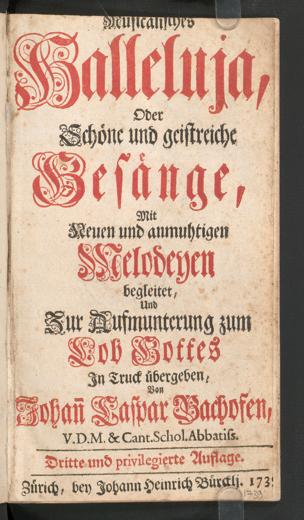 Musicalisches
Halleluja,
Oder
Schöne und geistreiche
Gesänge,
Mit
Neuen und anmuhtigen
Melodeyen
begleitet,
Und
Zur Aufmunterung zum
Lob Gottes
In Truck übergeben,
Von
Johañ Caspar Bachofen,
V.D.M. & Cant. Schol. Abbatiss.
Dritte und privilegierte Auflage.
Zürich, bey Johann Heinrich Bürcklj. 173